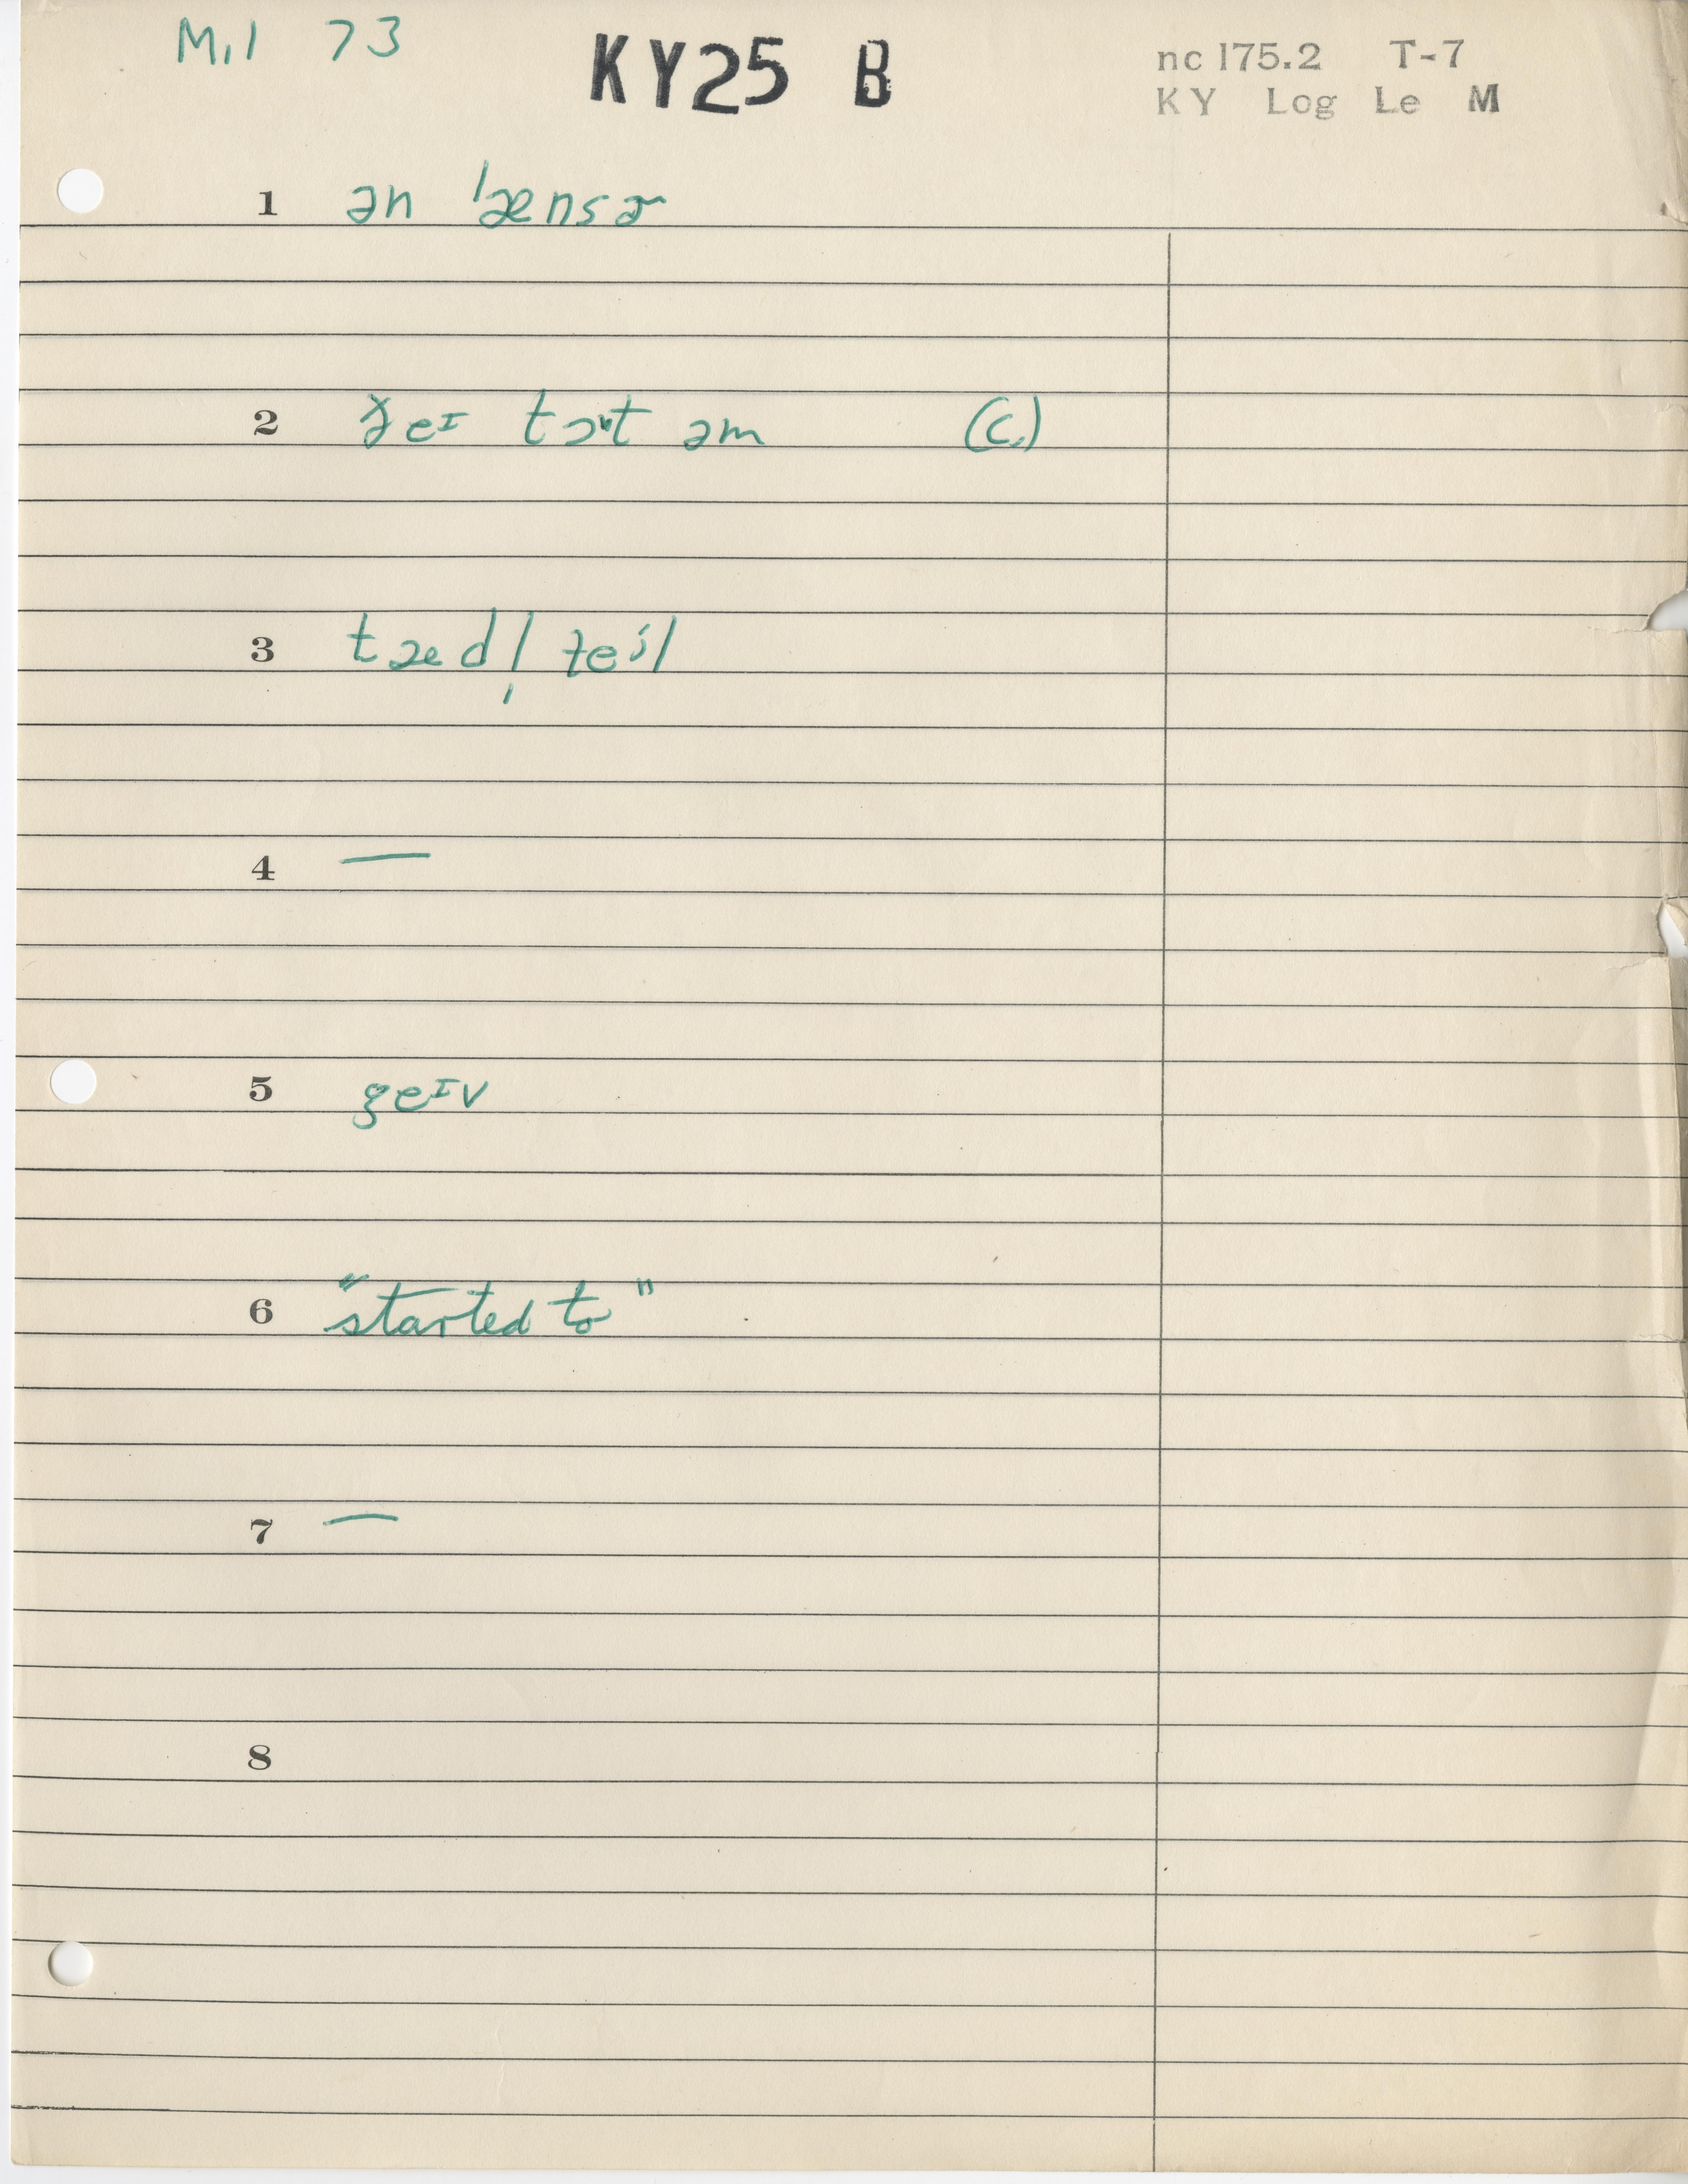 Mil 73 KY25 B nc 175.2 T-7
KY Log Le M
1 ən ˈænsɚ
2 ðeɪ tɔt əm (c.)
3 tædl̩ teil
4 —
5 geɪv
6 "started to"
7 —
8